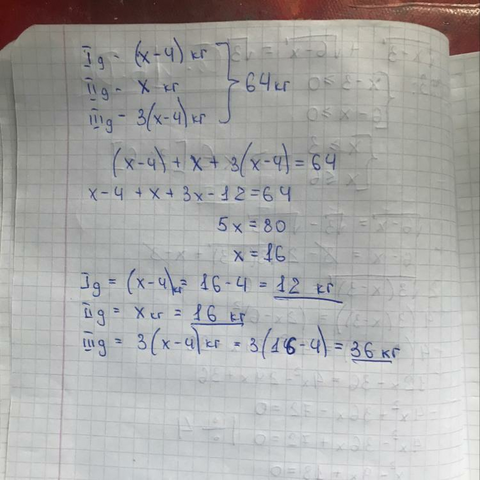 Ig - (x-4) кг
IIg - x кг
IIIg - 3(x-4) кг
64 кг
(x-4) + x + 3(x-4) = 64
x - 4 + x + 3x - 12 = 64
5x = 80
x = 16
Ig = (x-4) кг = 16 - 4 = 12 кг
IIg = x кг = 16 кг
IIIg = 3(x-4) кг = 3(16-4) = 36 кг